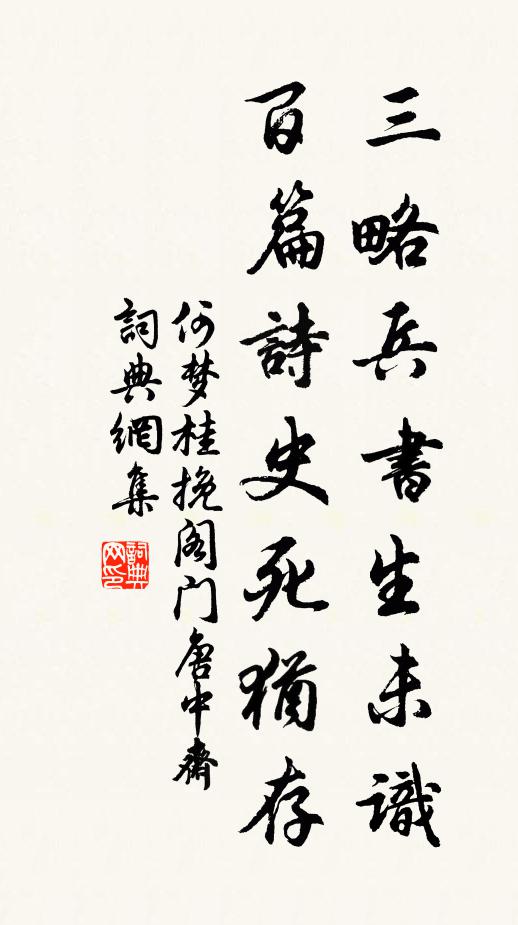 三略兵書生未識
百篇詩史死猶存
何梦桂挽阁门唐中齋
詞典網集
詞典网印